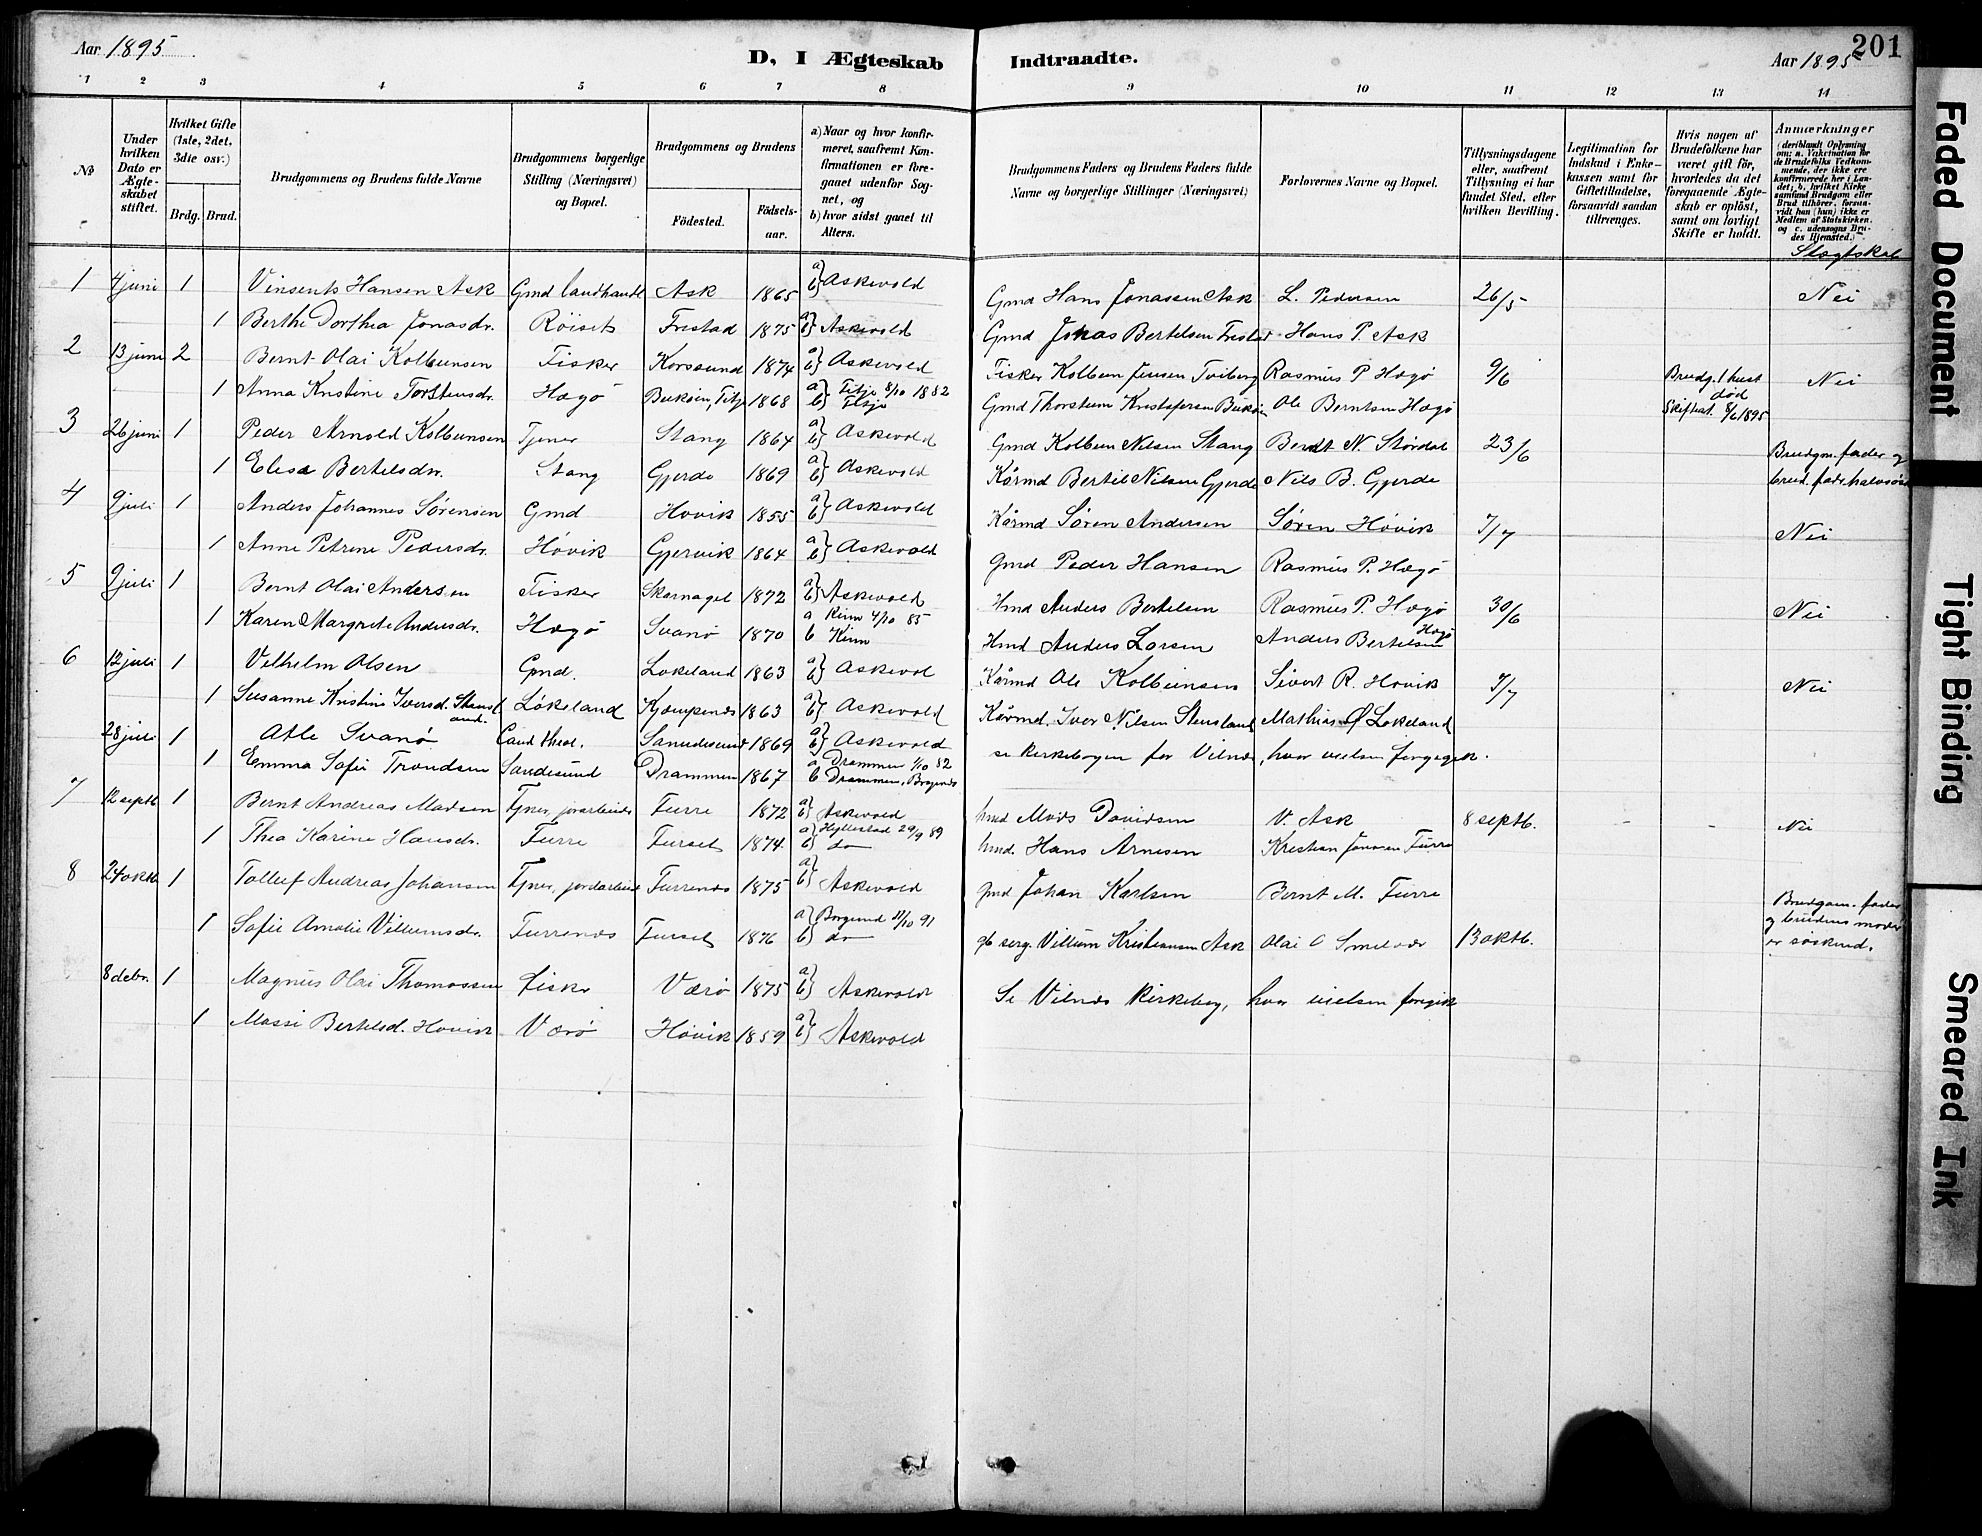 Aar 1895
D, I Ægteskab Indtraadte.
Aar 1895
201
1 2 3 4 5 6 7 8 9 10 11 12 13 14
№
Under hvilken Dato er Ægteskabet stiftet.
Hvilket Gifte (1ste, 2det, 3die osv.)
Brdg. Brud.
Brudgommens og Brudens fulde Navne
Brudgommens borgerlige Stilling (Næringsvei) og Bopæl.
Brudgommens og Brudens
Födested. Födsels-aar.
a) Naar og hvor konfirmeret, saafremt Konfirmationen er foregaaet udenfor Sognet, og
b) hvor sidst gaaet til Alters.
Brudgommens Faders og Brudens Faders fulde Navne og borgerlige Stillinger (Næringsvei)
Forlovernes Navne og Bopæl.
Tillysningsdagene eller, saafremt Tillysning ei har fundet Sted, efter hvilken Bevilling.
Legitimation for Indskud i Enkekassen samt for Giftetilladelse, forsaavidt saadan tiltrænges.
Hvis nogen af Brudefolkene har været gift för, hvorledes da det foregaaende Ægteskab er oplöst, samt om lovligt Skifte er holdt.
Anmærkninger (deriblandt Oplysning om: a. Vakcination for de Brudefolks Vedkommende, der ikke ere konfirmerede her i Landet; b. hvilket Kirkesamfund Brudgom eller Brud tilhörer, forsaavidt han (hun) ikke er Medlem af Statskirken, og c. udensogns Brudes Hjemsted.)
Slægtskab
1 4 juni 1 Vinsents Hansen Ask Gmd landhandl Ask 1865 a) b) Askevold Gmd Hans Jonassen Ask L. Pedersen 26/5 Nei
1 Berthe Dorthea Jonasdr. Röiset Frestad 1875 a) b) Askevold Gmd Jonas Bertelsen Frestad Hans P. Ask
2 13 juni 2 Bernt Olai Kolbeinsen Fisker Korssund 1874 a) b) Askevold Fisker Kolben Jensen Tviberg Rasmus P. Hægö 9/6 Brudg. 1 hust død Skifteat. 8/6 1895 Nei
1 Anna Kristine Torstensdr. Hægö Buköen, Fitje 1868 a) Fitje 8/10 1882 b) Fitje Gmd Thorstein Kristofersen Buköen Ole Berntsen Hægö
3 26 juni 1 Peder Arnold Kolbeinsen Tjener Stang 1864 a) b) Askevold Gmd Kolben Nilsen Stang Berdt N. Stördal 23/6 Brudgm. fader og
1 Elisa Bertelsdr. Stang Gjerde 1869 a) b) Askevold Kårmd Bertil Nilsen Gjerde Nils B. Gjerde brud. fadr halvsös
4 9 juli 1 Anders Johannes Sörensen Gmd Hovik 1855 a) b) Askevold Kårmd Sören Andersen Sören Hövik 7/7 Nei
1 Anne Petrine Pedersdr. Hövik Gjervik 1864 a) b) Askevold Gmd Peder Hansen Rasmus P. Hægö
5 9 juli 1 Bernt Olai Andersen Fisker Skornagel 1872 a) b) Askevold Hmd Anders Bertelsen Rasmus P. Hægö 30/6 Nei
1 Karen Margrete Andersdr. Hægö Svanö 1870 a Kinn 4/10 85 b Kinn Hmd Anders Larsen Anders Bertelsen Hægö
6 12 juli 1 Velhelm Olsen Gmd. Lökeland 1863 a) b) Askevol Kårmd Ole Kolbeinsen Sivert R. Hovik 7/7 Nei
1 Susanne Kristine Iversd. Stensland. Lökeland Kjempenes 1863 a) b) Askevold Kårmd. Iver Nilsen Stensland Mathias Ø Lökeland
28 juli 1 Atle Svanö Cand theol. Sandesund 1869 a) b) Askevold se kirkebogen for Vilnæs, hvor vielsen foregigk.
1 Emma Sofie Trondsen Sandesund Drammen 1867 a Drammen 1/10 82 b Drammen, Bragernes
7 12 septb 1 Bernt Andreas Madsen Tjner, jorarbeider Furre 1872 a) b) Askevold hmd Mads Davidsen V. Ask 8 septb. - - Nei
1 Thea Karine Hansdr. Furre Furset 1874 a) Hyllestad 29/9 89 b) do hmd. Hans Arnesen Kristian Jonsen Furre
8 24 oktb 1 Tollef Andreas Johansen Tjner, jordarbeid Furrenes 1875 a) b) Askevold gmd Johan Karlsen Bernt M. Furre Brudgom. fader
1 Sofie Amalie Villumsdr. Furrenes Furset 1876 a) Borgund 11/10 91 b) do gb serg. Villum Kristiansen Ask Olai O Smelvær 13 oktb. og brudens moder er söskend.
8 debr. 1 Magnus Olai Thomassen Fisker Værö 1875 a) b) Askevold Se Vilnæs Kirkebog, hvor vielsen foregik
1 Massi Bertelsd. Hovik Værö Hövik 1859 a) b) Askevold
Faded Document
Tight Binding
Smeared Ink